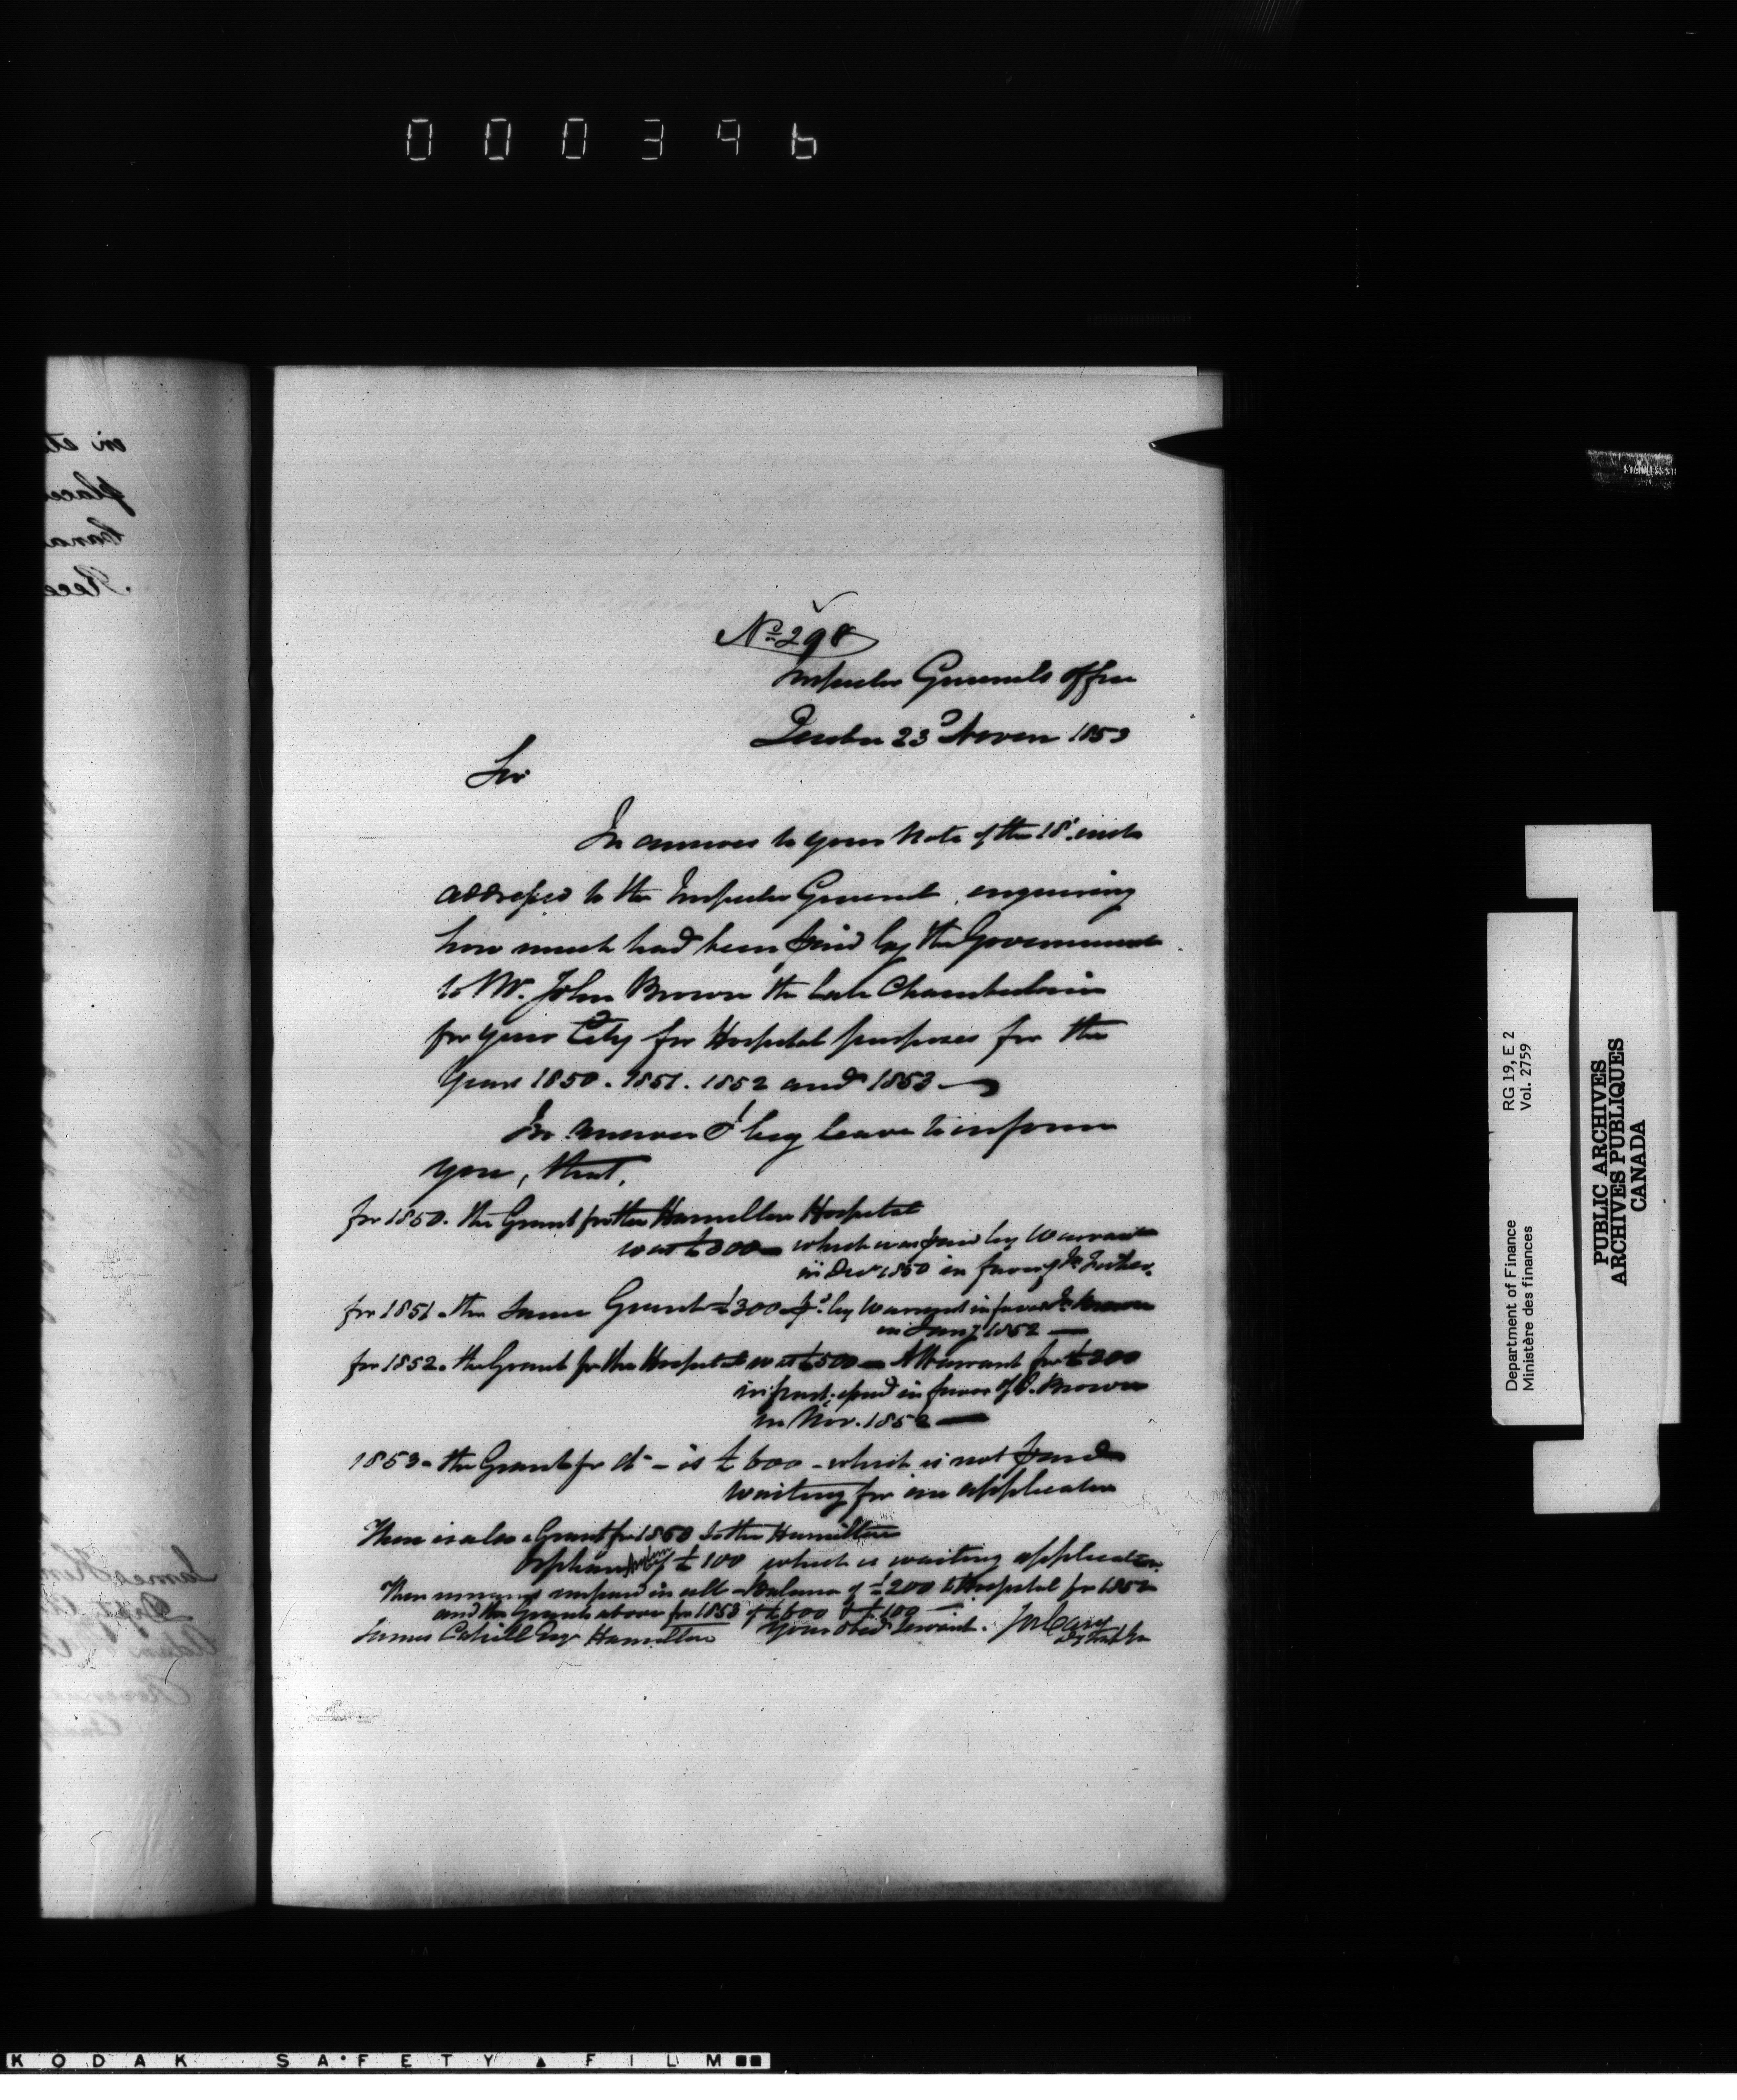 000396
No. 298
Inspector Generals Office
Quebec 23d Novem 1853
Sir
In answer to your Note of the 18th inst
addressed to the Inspector General, enquiring
how much had been paid by the Government
to Mr. John Brown the late Chamberlain
for your City for Hospital purposes for the
Years 1850. 1851. 1852 and 1853
In answer I beg leave to inform
you, that,
for 1850. the Grant for the Hamilton Hospital
was £300 which was paid by Warrant
in Decr 1850 in favor of
for 1851. the same Grant £300 pd. by Warrant in favor Jn Brown
in Jany 1852
for 1852. the Grant for the Hospital was £500 A Warrant for £300
in part, issued in favor of J. Brown
in Nov. 1852
1853. the Grant for do - is £600 - which is not paid
waiting for an application
There is also a Grant for to the Hamilton
Orphan Asylum of £100 which is waiting application.
There remains unpaid in all - Balance of £200 to Hospital for 1852
and the Grants above for 1853 of £600 & £100
James Cahill Esqr Hamilton Your obed Servant. Jos Cary
Dy Insp Gn
Department of Finance RG 19, E 2
Ministère des finances Vol. 2759
PUBLIC ARCHIVES
ARCHIVES PUBLIQUES
CANADA
KODAK SAFETY FILM